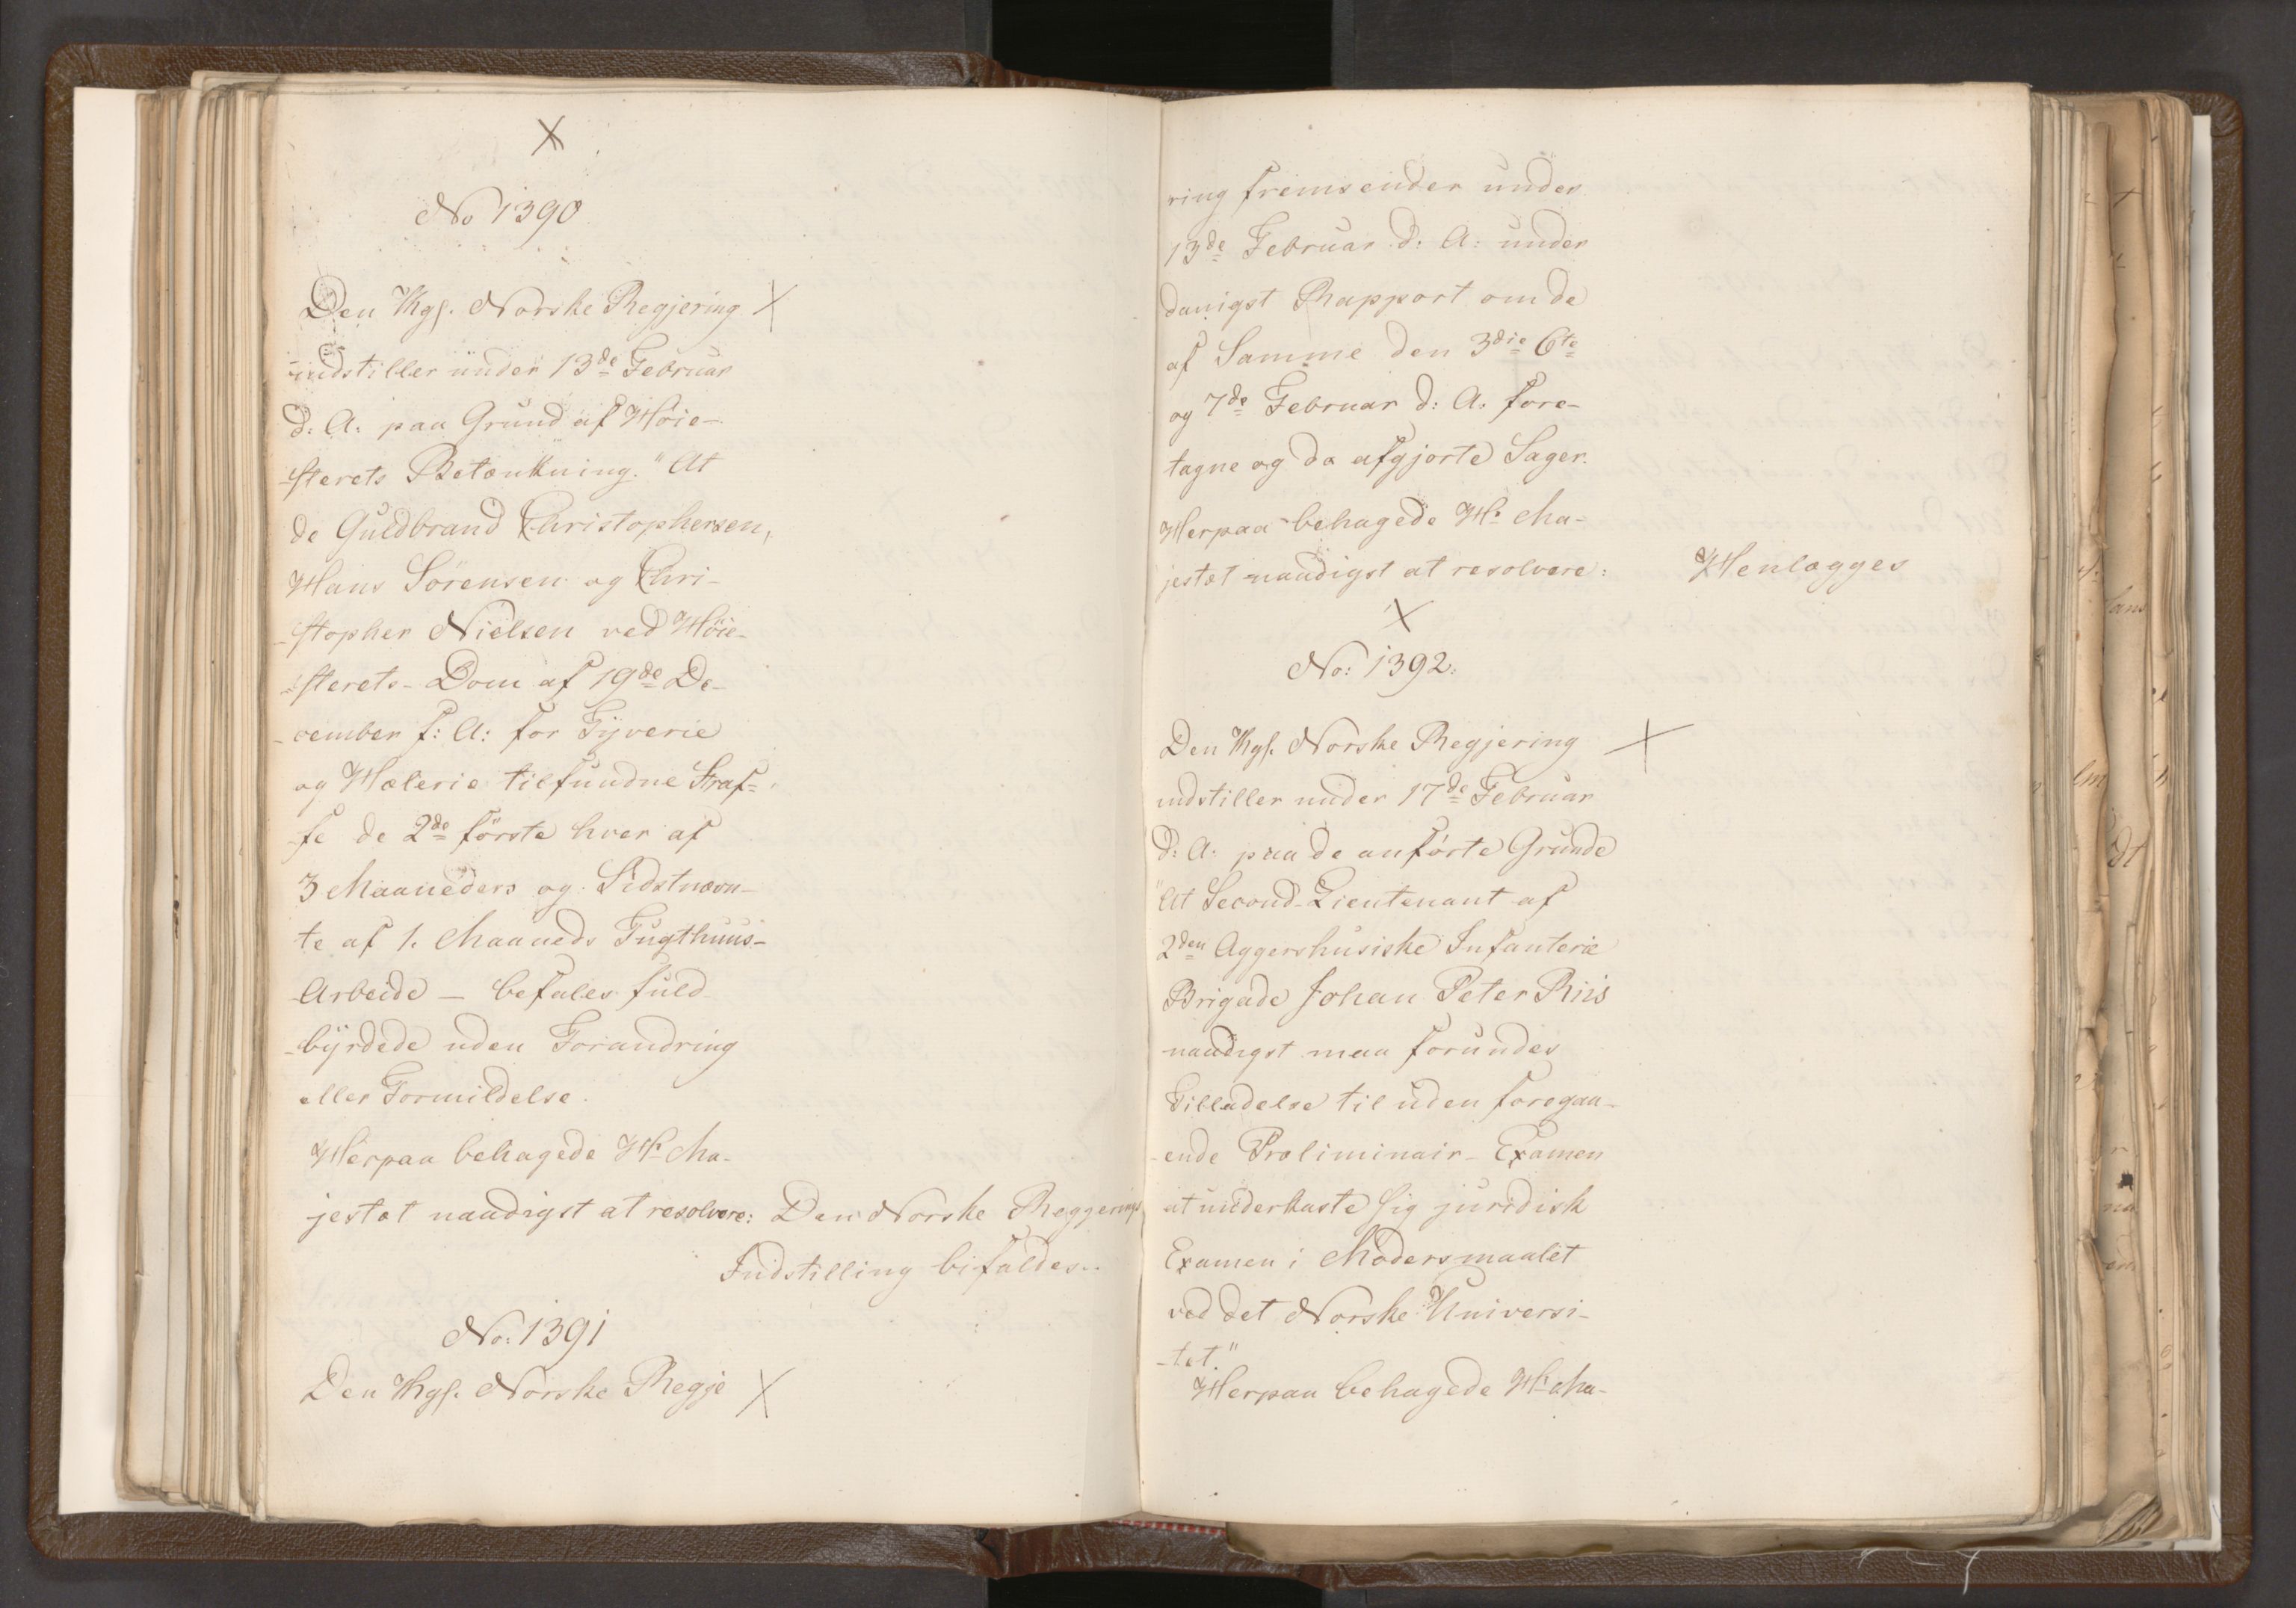 No 1390
Den Kgs. Norske Regjering
indstiller under 13de Februar
d: A: paa Grund af Höie-
-sterets Betænkning. "At
de Guldbrand Christophersen,
Hans Sörensen og Chri-
-stopher Nielsen ved Höie-
-sterets-Dom af 19de De-
-cember f: A: for Tyverie
og Hæleri tilfundne Straf-
-fe de 2de förste hver af
3 Maaneders og Sidstnævn-
te af 1. Maaneds Tugthuus-
-Arbeide — befales fuld
-byrdede uden Forandring
eller Formildelse.
Herpaa behagede Hs Ma-
jestæt naadigst at resolvere: Den Norske Reggerings
Indstilling bifaldes.
No: 1391
Den Kgs. Norske Regje
ring fremsender under
13de Februar d: A: under
danigst Rapport om de
af Samme den 3die 6te
og 7de Februar d: A: fore-
tagne og da afgjorte Sager.
Herpaa behagede Hs Ma-
jestæt naadigst at resolvere: Henlægges
No: 1392:
Den Kgs. Norske Regjering
indstiller under 17de Februar
d: A: paa de anförte Grunde
"At Second-Lieutenant af
2den Aggershusiske Infanterie
Brigade Johan Peter Riis
naadigst maa forundes
Tilladelse til uden foregaa-
-ende Præliminair-Examen
at underkaste sig juridisk
Examen i Modersmaalet
ved det Norske Universi-
-tet."
Herpaa behagede Hs Ma-